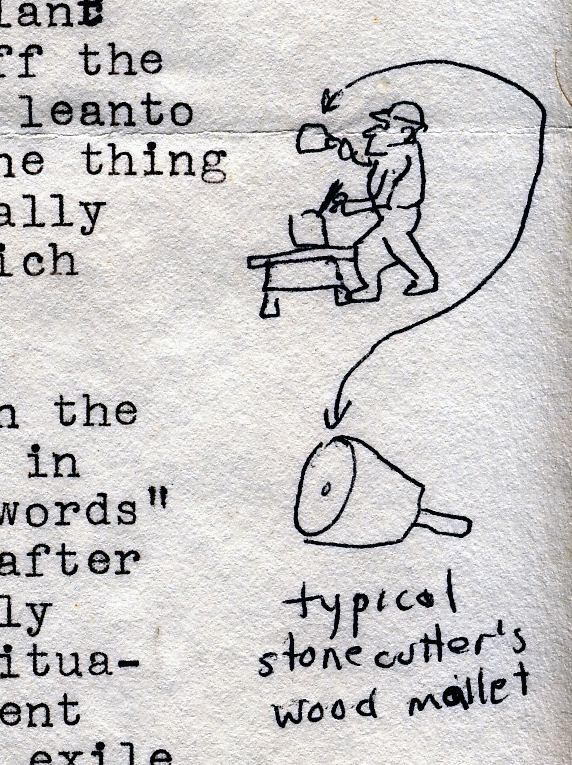 lant
ff the
leanto
he thing
ally
ich
n the
in
words"
after
ly
itua-
ent
exile
typical
stone cutter's
wood mallet